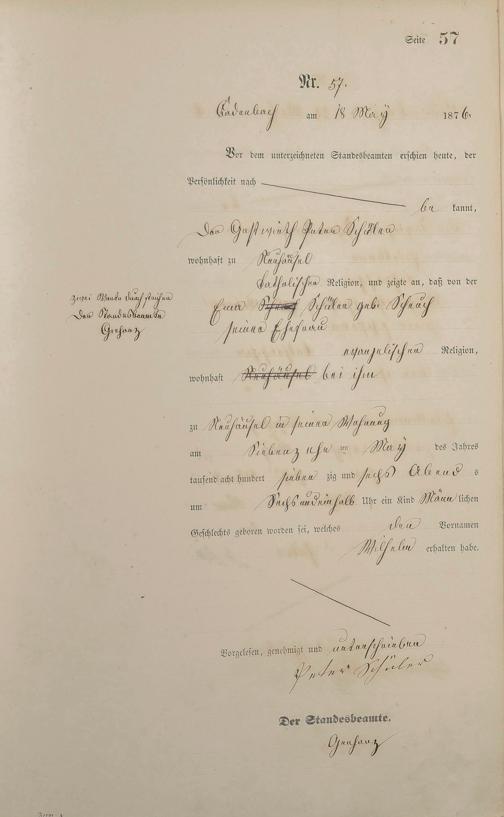 Seite 57
Nr. 57.
Cadenbach am 18 May 1876.
Vor dem unterzeichneten Standesbeamten erschien heute, der
Persönlichkeit nach
be kannt,
Der Gastwirth Peter Schüler
wohnhaft zu Neuhäusel
katholischer Religion, und zeigte an, daß von der
Schüler geb:
seiner Ehefrau
evangelischer Religion,
wohnhaft Neuhäusel bei ihm
zu Neuhäusel in seiner Wohnung
am Siebenzehn ten May des Jahres
tausend acht hundert sieben zig und sechs Abend s
um Sechs und einhalb Uhr ein Kind Männ lichen
Geschlechts geboren worden sei, welches den Vornamen
Wilhelm erhalten habe.
zwei Worte durchstrichen
Der Standesbeamte
Gerharz
Vorgelesen, genehmigt und unterschrieben
Peter Schüler
Der Standesbeamte.
Gerharz